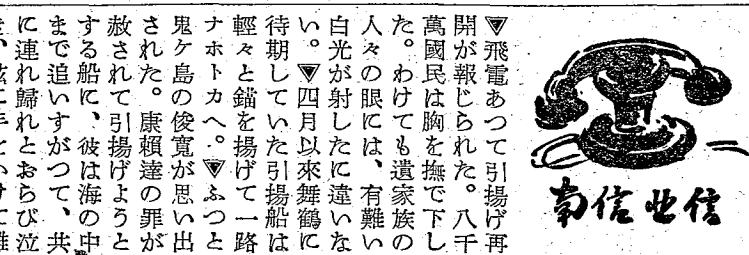 南信北信
▼飛電あつて引揚げ再
開が報じられた。八千
萬國民は胸を撫で下し
た。わけても遺家族の
人々の眼には、有難い
白光が射したに違いな
い。▼四月以來舞鶴に
待期していた引揚船は
輕々と錨を揚げて一路
ナホトカへ。▼ふつと
鬼ケ島の俊寛が思い出
された。康頼達の罪が
赦されて引揚げようと
する船に、彼は海の中
まで追いすがつて、共
に連れ歸れとおらび泣